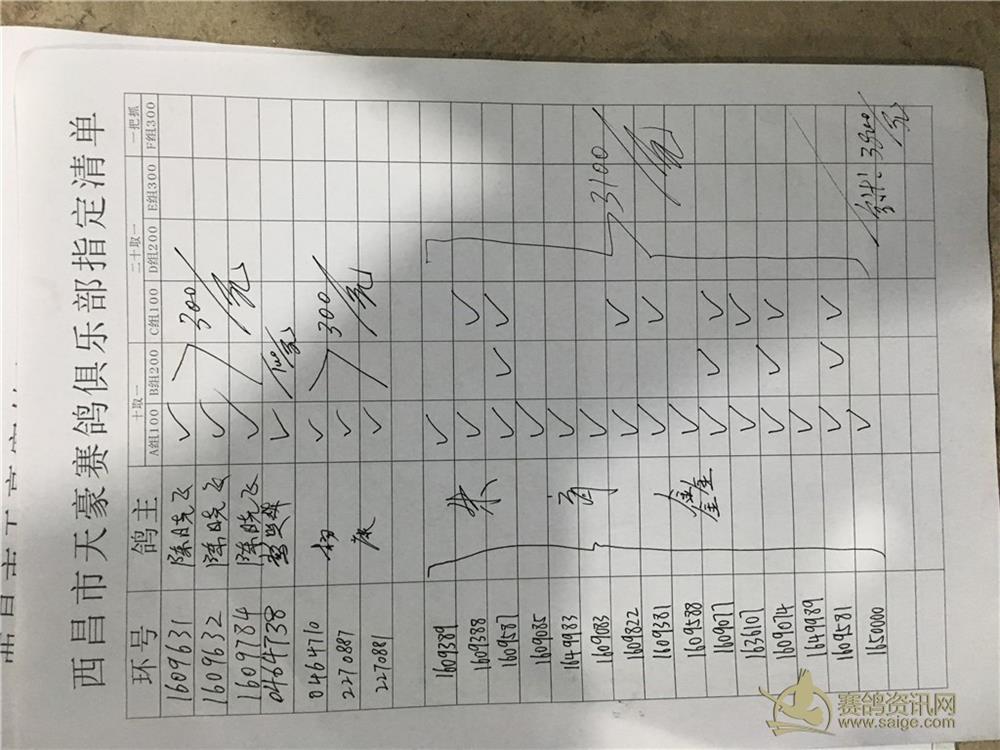 西昌市天豪赛鸽俱乐部指定清单
十取一 二十取一 一把抓
环号 鸽主 A组100 B组200 C组100 D组200 E组300 F组300
1609631 陈晓飞 ✓
1609632 陈晓飞 ✓ 300/元
1609784 陈晓飞 ✓
0464738 ✓ 100/元
0464710 杨 ✓
2270887 康 ✓ 300/元
227088 ✓
1609389 ✓
1609388 朱 ✓ ✓
1609587 ✓ ✓ ✓
1609085 ✓
1649983 ✓
1609083 ✓ 3100/元
1609822 ✓ ✓
1609381 ✓ ✓
1609588 鑫 ✓
1609077 ✓ ✓ ✓
1636107 ✓ ✓
1609074 ✓ ✓ ✓
1649989 ✓
1609581 ✓ ✓ ✓
1650000 ✓
合计: 3900/元
赛鸽资讯网
www.saige.com